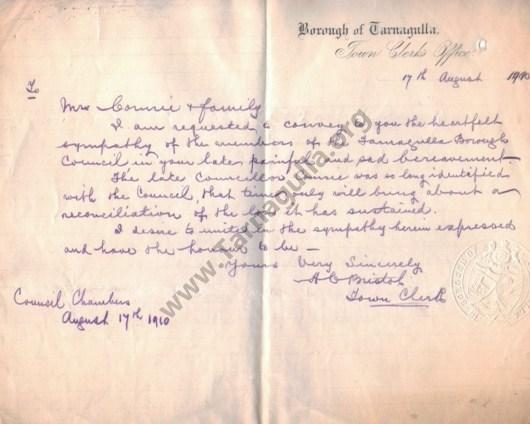 Borough of Tarnagulla.
Town Clerks Office
17th August 1910
To
Mrs Comrie & family
I am requested to convey to you the heartfelt
sympathy of the members of the Tarnagulla Borough
Council in your late painful and sad bereavement
The late Councillor Comrie was so long identified
with the Council, that time only will bring about a
reconciliation of the loss it has sustained.
I desire to unite in the sympathy herein expressed
and have the honour to be —
Yours Very Sincerely
A C Bristol
Town Clerk
Council Chambers
August 17th 1910
www.Tarnagulla.org